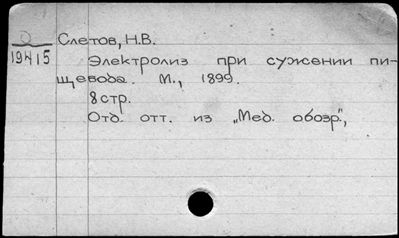 О Слетов, Н.В.
19415 Электролиз при сужении пи-
щевода. М., 1899.
8 стр.
Отд. отт. из „Мед. обозр.",